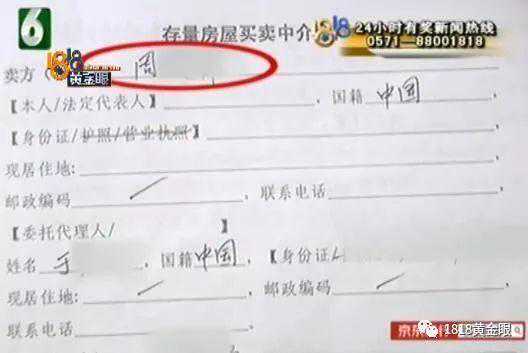 6
存量房屋买卖中介
1818 24小时有奖新闻热线
黄金眼 0571—88001818
卖方（ 周
【本人/法定代表人】 国籍 中国
【身份证/护照/营业执照】
现居住地:
邮政编码 / 联系电话
【委托代理人/ 】
姓名 于 国籍 中国 【身份证
现居住地: / 邮政编码 /
联系电话
京东 1818黄金眼